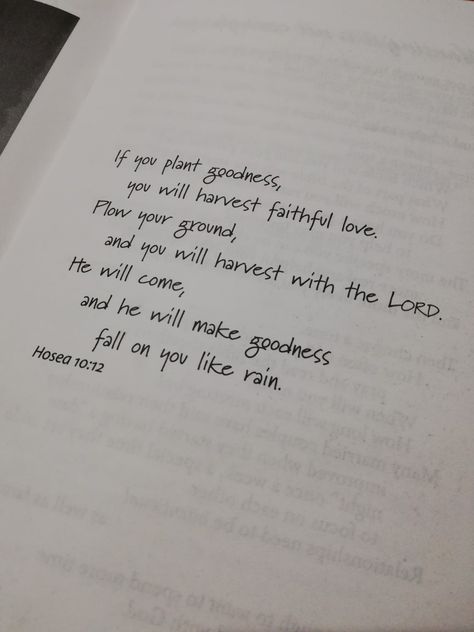 If you plant goodness,
you will harvest faithful love.
Plow your ground,
and you will harvest with the LORD.
He will come,
and he will make goodness
fall on you like rain.
Hosea 10:12